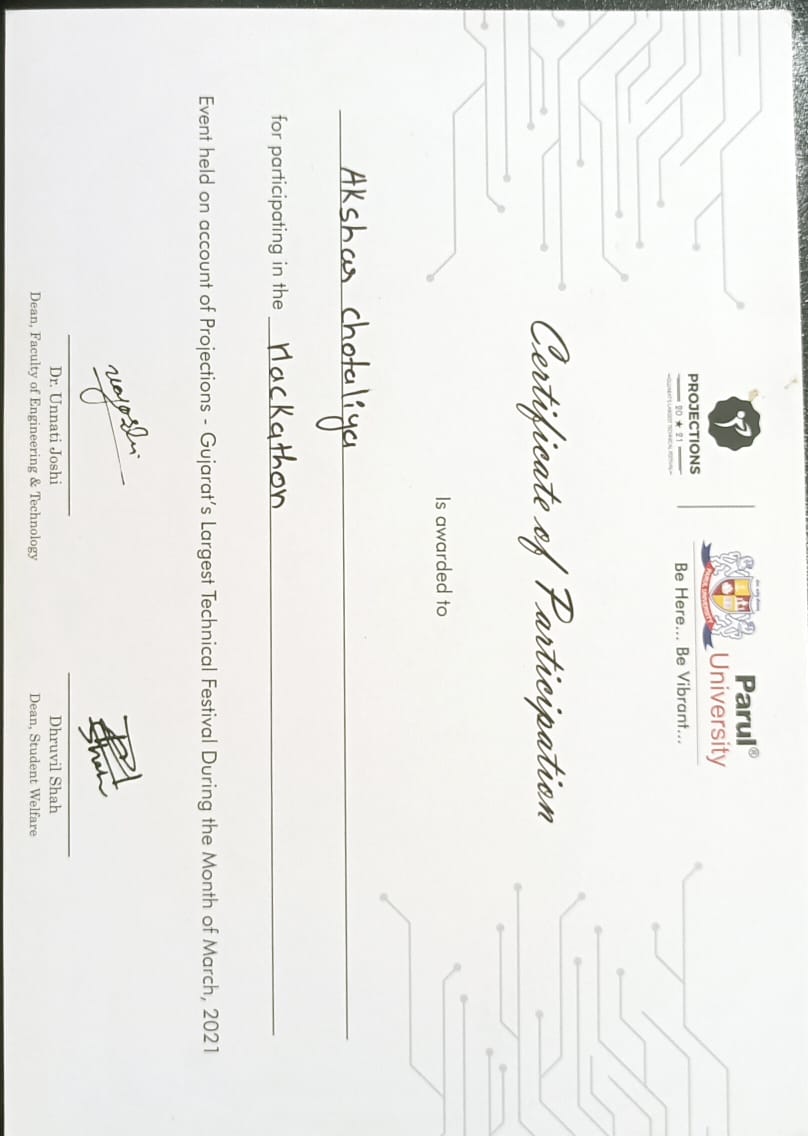 PROJECTIONS
20 ★ 21
GUJARAT'S LARGEST TECHNICAL FESTIVAL
Parul®
University
PARUL UNIVERSITY
Be Here... Be Vibrant...
Certificate of Participation
Is awarded to
Akshar chotaliya
for participating in the Hackathon
Event held on account of Projections - Gujarat's Largest Technical Festival During the Month of March, 2021
Dr. Unnati Joshi
Dean, Faculty of Engineering & Technology
Dhruvil Shah
Dean, Student Welfare